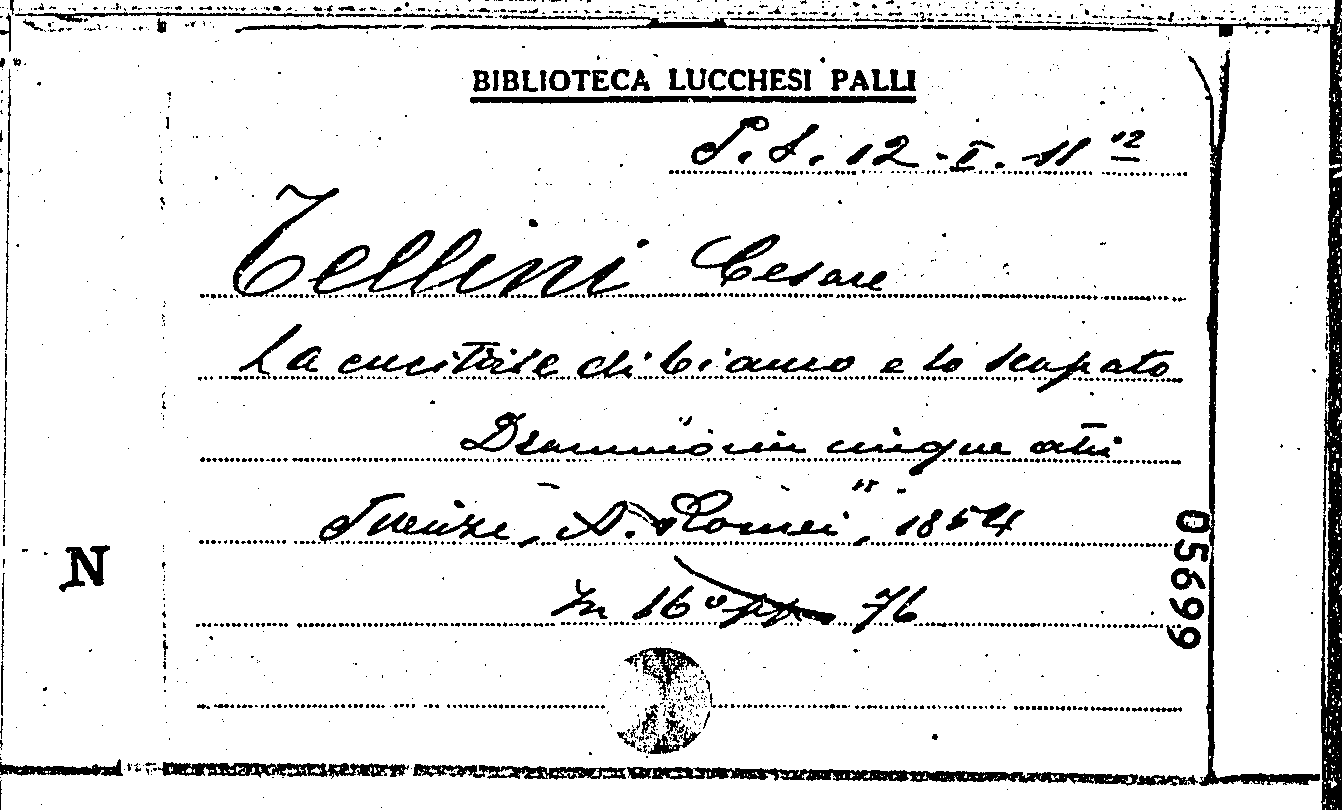 BIBLIOTECA LUCCHESI PALLI
P.S. 12 - I. 11 12
Tellini Cesare
La cucitrice di bianco e lo scapato
Dramma in cinque atti
Firenze, A. Romei, 1854
In 16º pp 76
N
05699